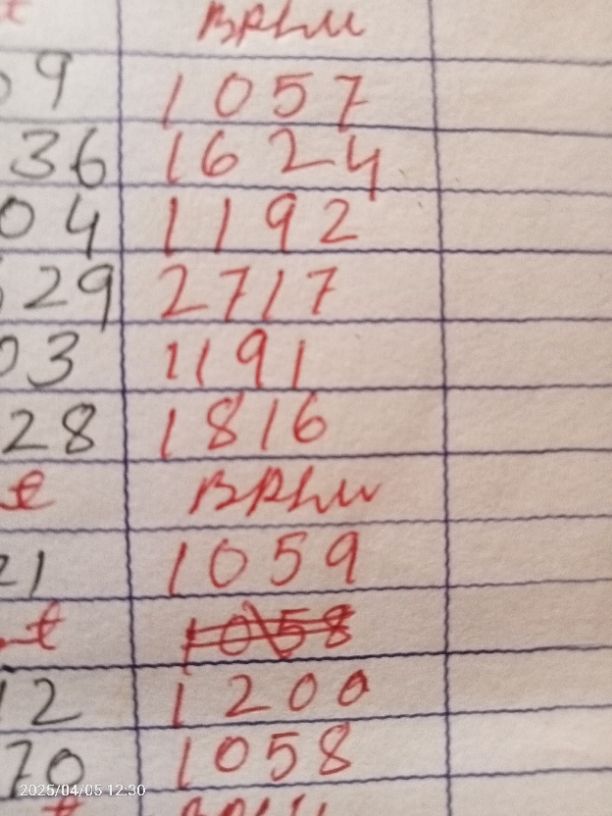 9 1057
36 1624
04 1192
29 2717
03 1191
28 1816
21 1059
1058
12 1200
70 1058
2025/04/05 12:30